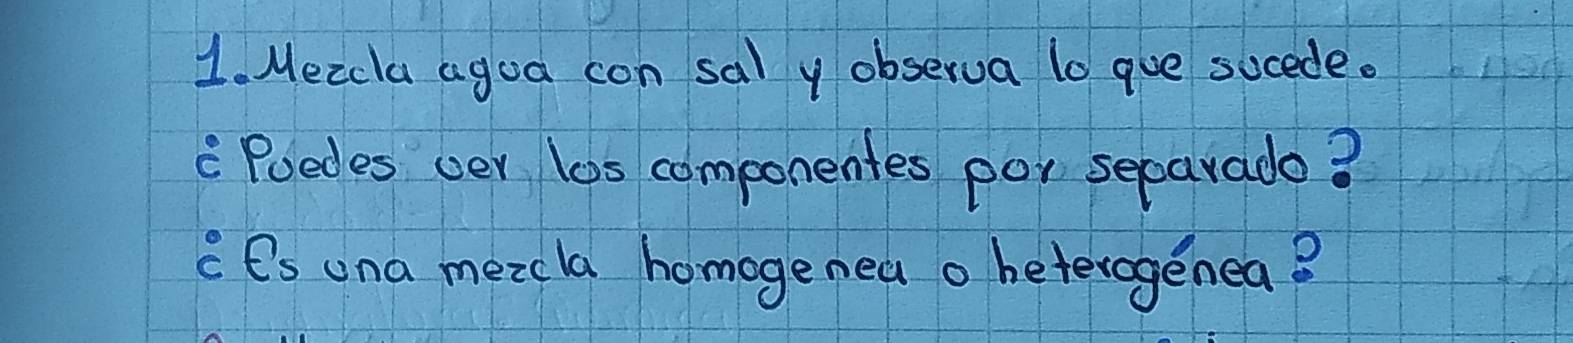 1. Mezcla agua con sal y observa lo que sucede.
¿Puedes ver los componentes por separado?
¿Es una mezcla homogenea o heterogénea?